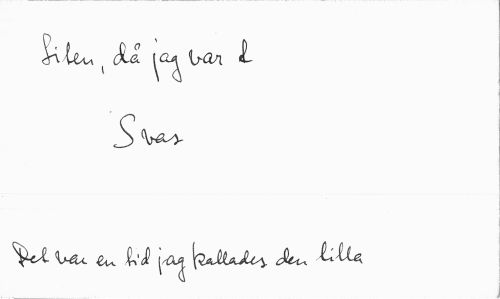 Liten, då jag var l
Svar
Det var en tid jag kallades den lilla